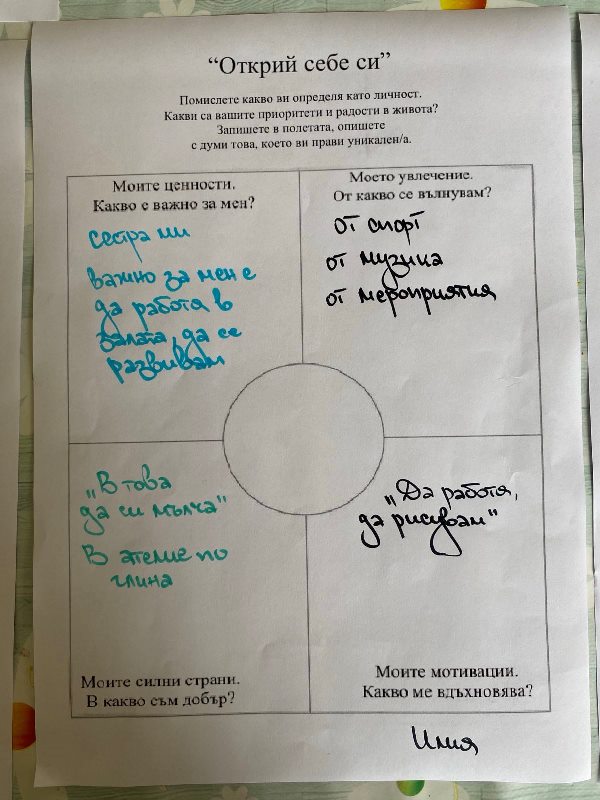 “Открий себе си”
Помислете какво ви определя като личност.
Какви са вашите приоритети и радости в живота?
Запишете в полетата, опишете
с думи това, което ви прави уникален/а.
Моите ценности.
Какво е важно за мен?
сестра ми
важно за мен е
да работя в
залата, да се
развивам
Моето увлечение.
От какво се вълнувам?
от спорт
от музика
от мероприятия
„В това
да си мълча“
В ателие по
глина
Моите силни страни.
В какво съм добър?
„Да работя,
да рисувам“
Моите мотивации.
Какво ме вдъхновява?
Илия